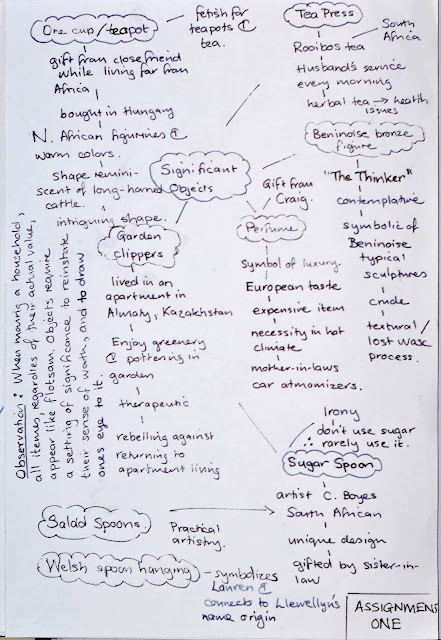 One cup/teapot
fetish for
teapots &
tea.
gift from close friend
while living far from
Africa
bought in Hungary
N. African figurines &
warm colors.
shape remini-
scent of long-horned
cattle.
intriguing shape.
Tea Press
South
Africa
Rooibos tea
Husband's service
every morning
herbal tea → health
issues
Significant
Objects
Beninoise bronze
figure
"The Thinker"
contemplative
symbolic of
Beninoise
typical
sculptures
crude
textural /
lost wax
process.
Gift from
Craig.
Perfume
Symbol of luxury.
European taste
expensive item
necessity in hot
climate
mother-in-laws
car atmomizers.
Garden
clippers
lived in an
apartment in
Almaty, Kazakhstan
Enjoy greenery
& pottering in
garden
therapeutic
rebelling against
returning to
apartment living
Observation: When moving a household,
all items, regardles of their actual value,
appear like flotsam. Objects require
a setting of significance to reinstate
their sense of worth, and to draw
ones eye to it.
Irony
don't use sugar
∴ rarely use it.
Sugar Spoon
artist C. Boyes
South African
unique design
gifted by sister-in-
law
Salad Spoons.
Practical
artistry.
Welsh spoon hanging
symbolizes
Lauren &
connects to Llewellyn's
name origin
ASSIGNMENT
ONE